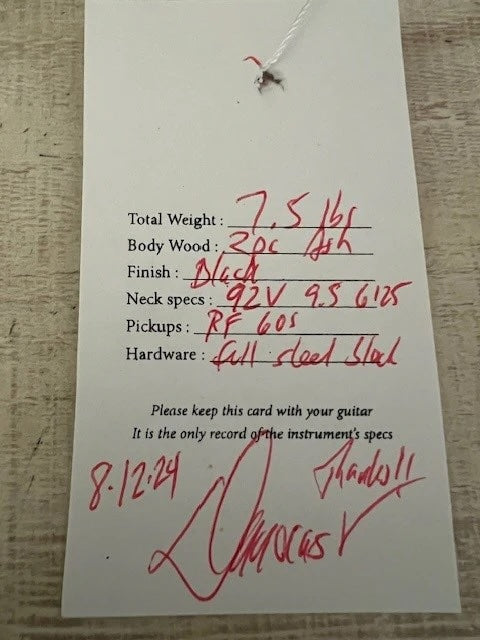 Total Weight : 7.5 lbs
Body Wood : 2pc Ash
Finish : Black
Neck specs : 92V 9.5 6125
Pickups : RF 60s
Hardware : full steel block
Please keep this card with your guitar
It is the only record of the instrument's specs
8.12.24 Thanks!!